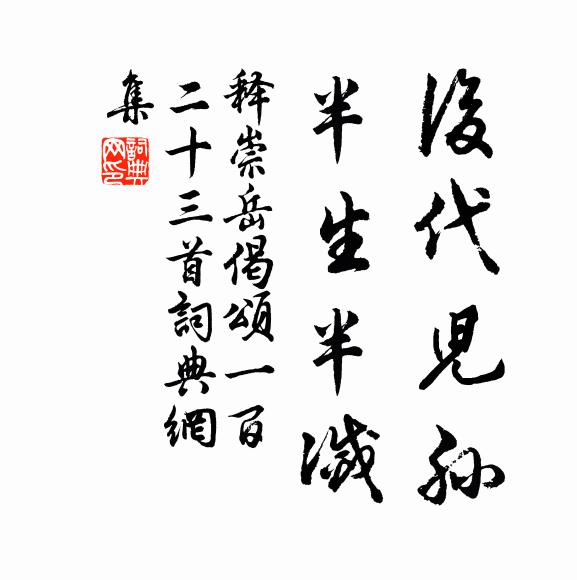 後代児孙
半生半滅
释崇岳偈頌一百
二十三首詞典網
集
詞典网印